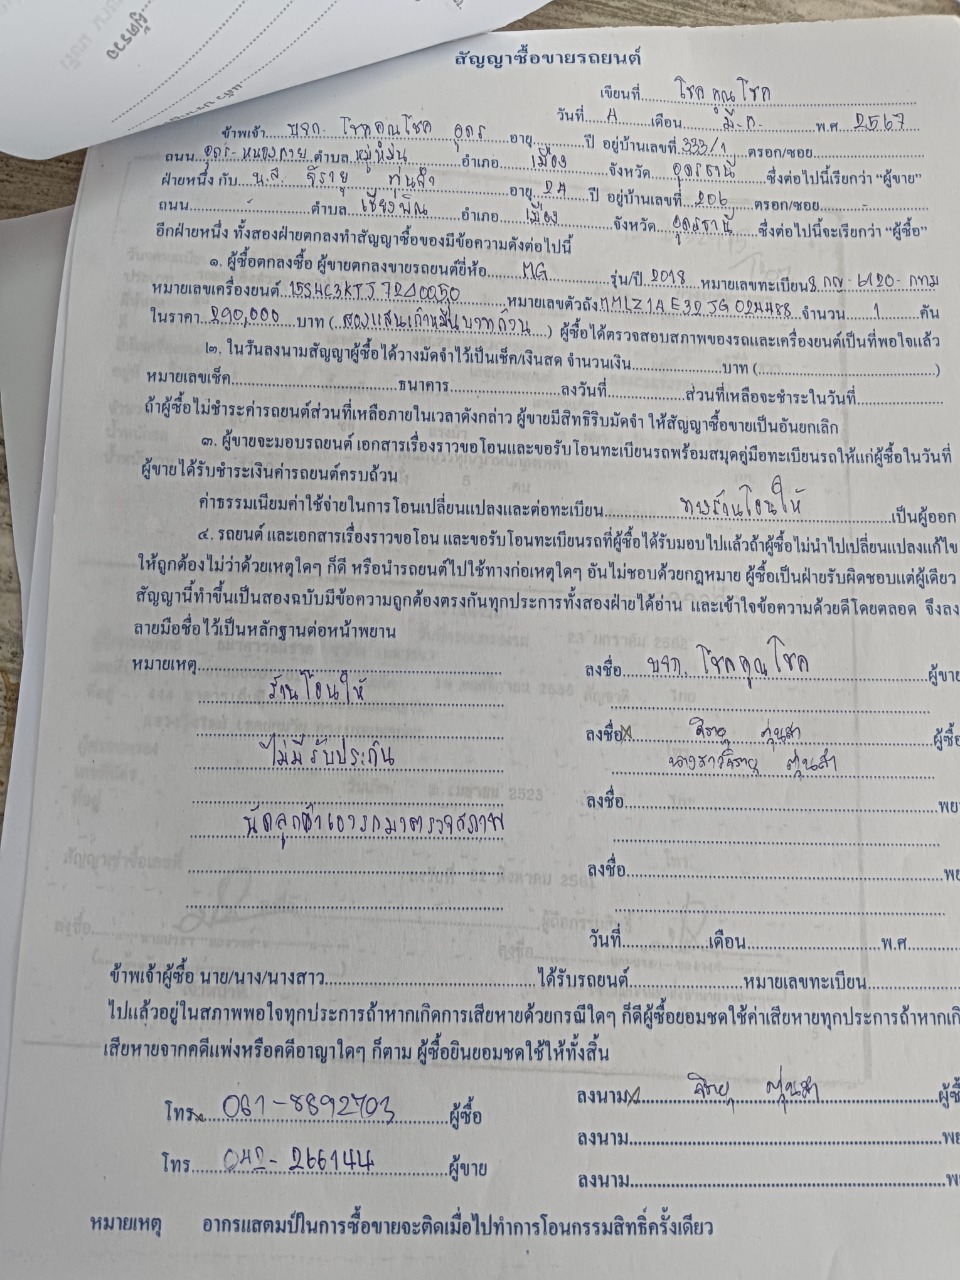 สัญญาซื้อขายรถยนต์
เขียนที่ โชคคูณโชค
วันที่ 4 เดือน มี.ค. พ.ศ 2567
ข้าพเจ้า บจก. โชคคูณโชค อุดร อายุ ปี อยู่บ้านเลขที่ 333/1 ตรอก/ซอย
ถนน อุดร-หนองคาย ตำบล หมูม่น อำเภอ เมือง จังหวัด อุดรธานี ซึ่งต่อไปนี้เรียกว่า "ผู้ขาย"
ฝ่ายหนึ่ง กับ น.ส. จิรายุ ทุ่นสำ อายุ 24 ปี อยู่บ้านเลขที่ 206 ตรอก/ซอย
ถนน ตำบล เชียงพิณ อำเภอ เมือง จังหวัด อุดรธานี ซึ่งต่อไปนี้จะเรียกว่า "ผู้ซื้อ"
อีกฝ่ายหนึ่ง ทั้งสองฝ่ายตกลงทำสัญญาซื้อของมีข้อความดังต่อไปนี้
๑. ผู้ซื้อตกลงซื้อ ผู้ขายตกลงขายรถยนต์ยี่ห้อ MG รุ่น/ปี 2018 หมายเลขทะเบียน 8 กญ-6120-กทม
หมายเลขเครื่องยนต์ 15S4C3KTJ7240250 หมายเลขตัวถัง MMLZ1AE32JG024488 จำนวน 1 คัน
ในราคา 290,000 บาท (สองแสนเก้าหมื่นบาทถ้วน) ผู้ซื้อได้ตรวจสอบสภาพของรถและเครื่องยนต์เป็นที่พอใจแล้ว
๒. ในวันลงนามสัญญาผู้ซื้อได้วางมัดจำไว้เป็นเช็ค/เงินสด จำนวนเงิน บาท ( )
หมายเลขเช็ค ธนาคาร ลงวันที่ ส่วนที่เหลือจะชำระในวันที่
ถ้าผู้ซื้อไม่ชำระค่ารถยนต์ส่วนที่เหลือภายในเวลาดังกล่าว ผู้ขายมีสิทธิริบมัดจำ ให้สัญญาซื้อขายเป็นอันยกเลิก
๓. ผู้ขายจะมอบรถยนต์ เอกสารเรื่องราวขอโอนและขอรับโอนทะเบียนรถพร้อมสมุดคู่มือทะเบียนรถให้แก่ผู้ซื้อในวันที่
ผู้ขายได้รับชำระเงินค่ารถยนต์ครบถ้วน
ค่าธรรมเนียมค่าใช้จ่ายในการโอนเปลี่ยนแปลงและต่อทะเบียน ทางร้านโอนให้ เป็นผู้ออก
๔. รถยนต์ และเอกสารเรื่องราวขอโอน และขอรับโอนทะเบียนรถที่ผู้ซื้อได้รับมอบไปแล้วถ้าผู้ซื้อไม่นำไปเปลี่ยนแปลงแก้ไข
ให้ถูกต้องไม่ว่าด้วยเหตุใดๆ ก็ดี หรือนำรถยนต์ไปใช้ทางก่อเหตุใดๆ อันไม่ชอบด้วยกฎหมาย ผู้ซื้อเป็นฝ่ายรับผิดชอบแต่ผู้เดียว
สัญญานี้ทำขึ้นเป็นสองฉบับมีข้อความถูกต้องตรงกันทุกประการทั้งสองฝ่ายได้อ่าน และเข้าใจข้อความด้วยดีโดยตลอด จึงลง
ลายมือชื่อไว้เป็นหลักฐานต่อหน้าพยาน
หมายเหตุ ลงชื่อ บจก. โชคคูณโชค ผู้ขาย
ร้านโอนให้
ลงชื่อ จิรายุ ทุ่นสำ ผู้ซื้อ
ไม่มีรับประกัน นางสาวจิรายุ ทุ่นสำ
ลงชื่อ พย
นัดลูกค้าเอารถมาตรวจสภาพ
ลงชื่อ พย
วันที่ เดือน พ.ศ
ข้าพเจ้าผู้ซื้อ นาย/นาง/นางสาว ได้รับรถยนต์ หมายเลขทะเบียน
ไปแล้วอยู่ในสภาพพอใจทุกประการถ้าหากเกิดการเสียหายด้วยกรณีใดๆ ก็ดีผู้ซื้อยอมชดใช้ค่าเสียหายทุกประการถ้าหากเกิ
เสียหายจากคดีแพ่งหรือคดีอาญาใดๆ ก็ตาม ผู้ซื้อยินยอมชดใช้ให้ทั้งสิ้น
ลงนาม จิรายุ ทุ่นสำ ผู้ซื้
โทร 061-8892703 ผู้ซื้อ
ลงนาม พย
โทร 042-266144 ผู้ขาย
ลงนาม พย
หมายเหตุ อากรแสตมป์ในการซื้อขายจะติดเมื่อไปทำการโอนกรรมสิทธิ์ครั้งเดียว